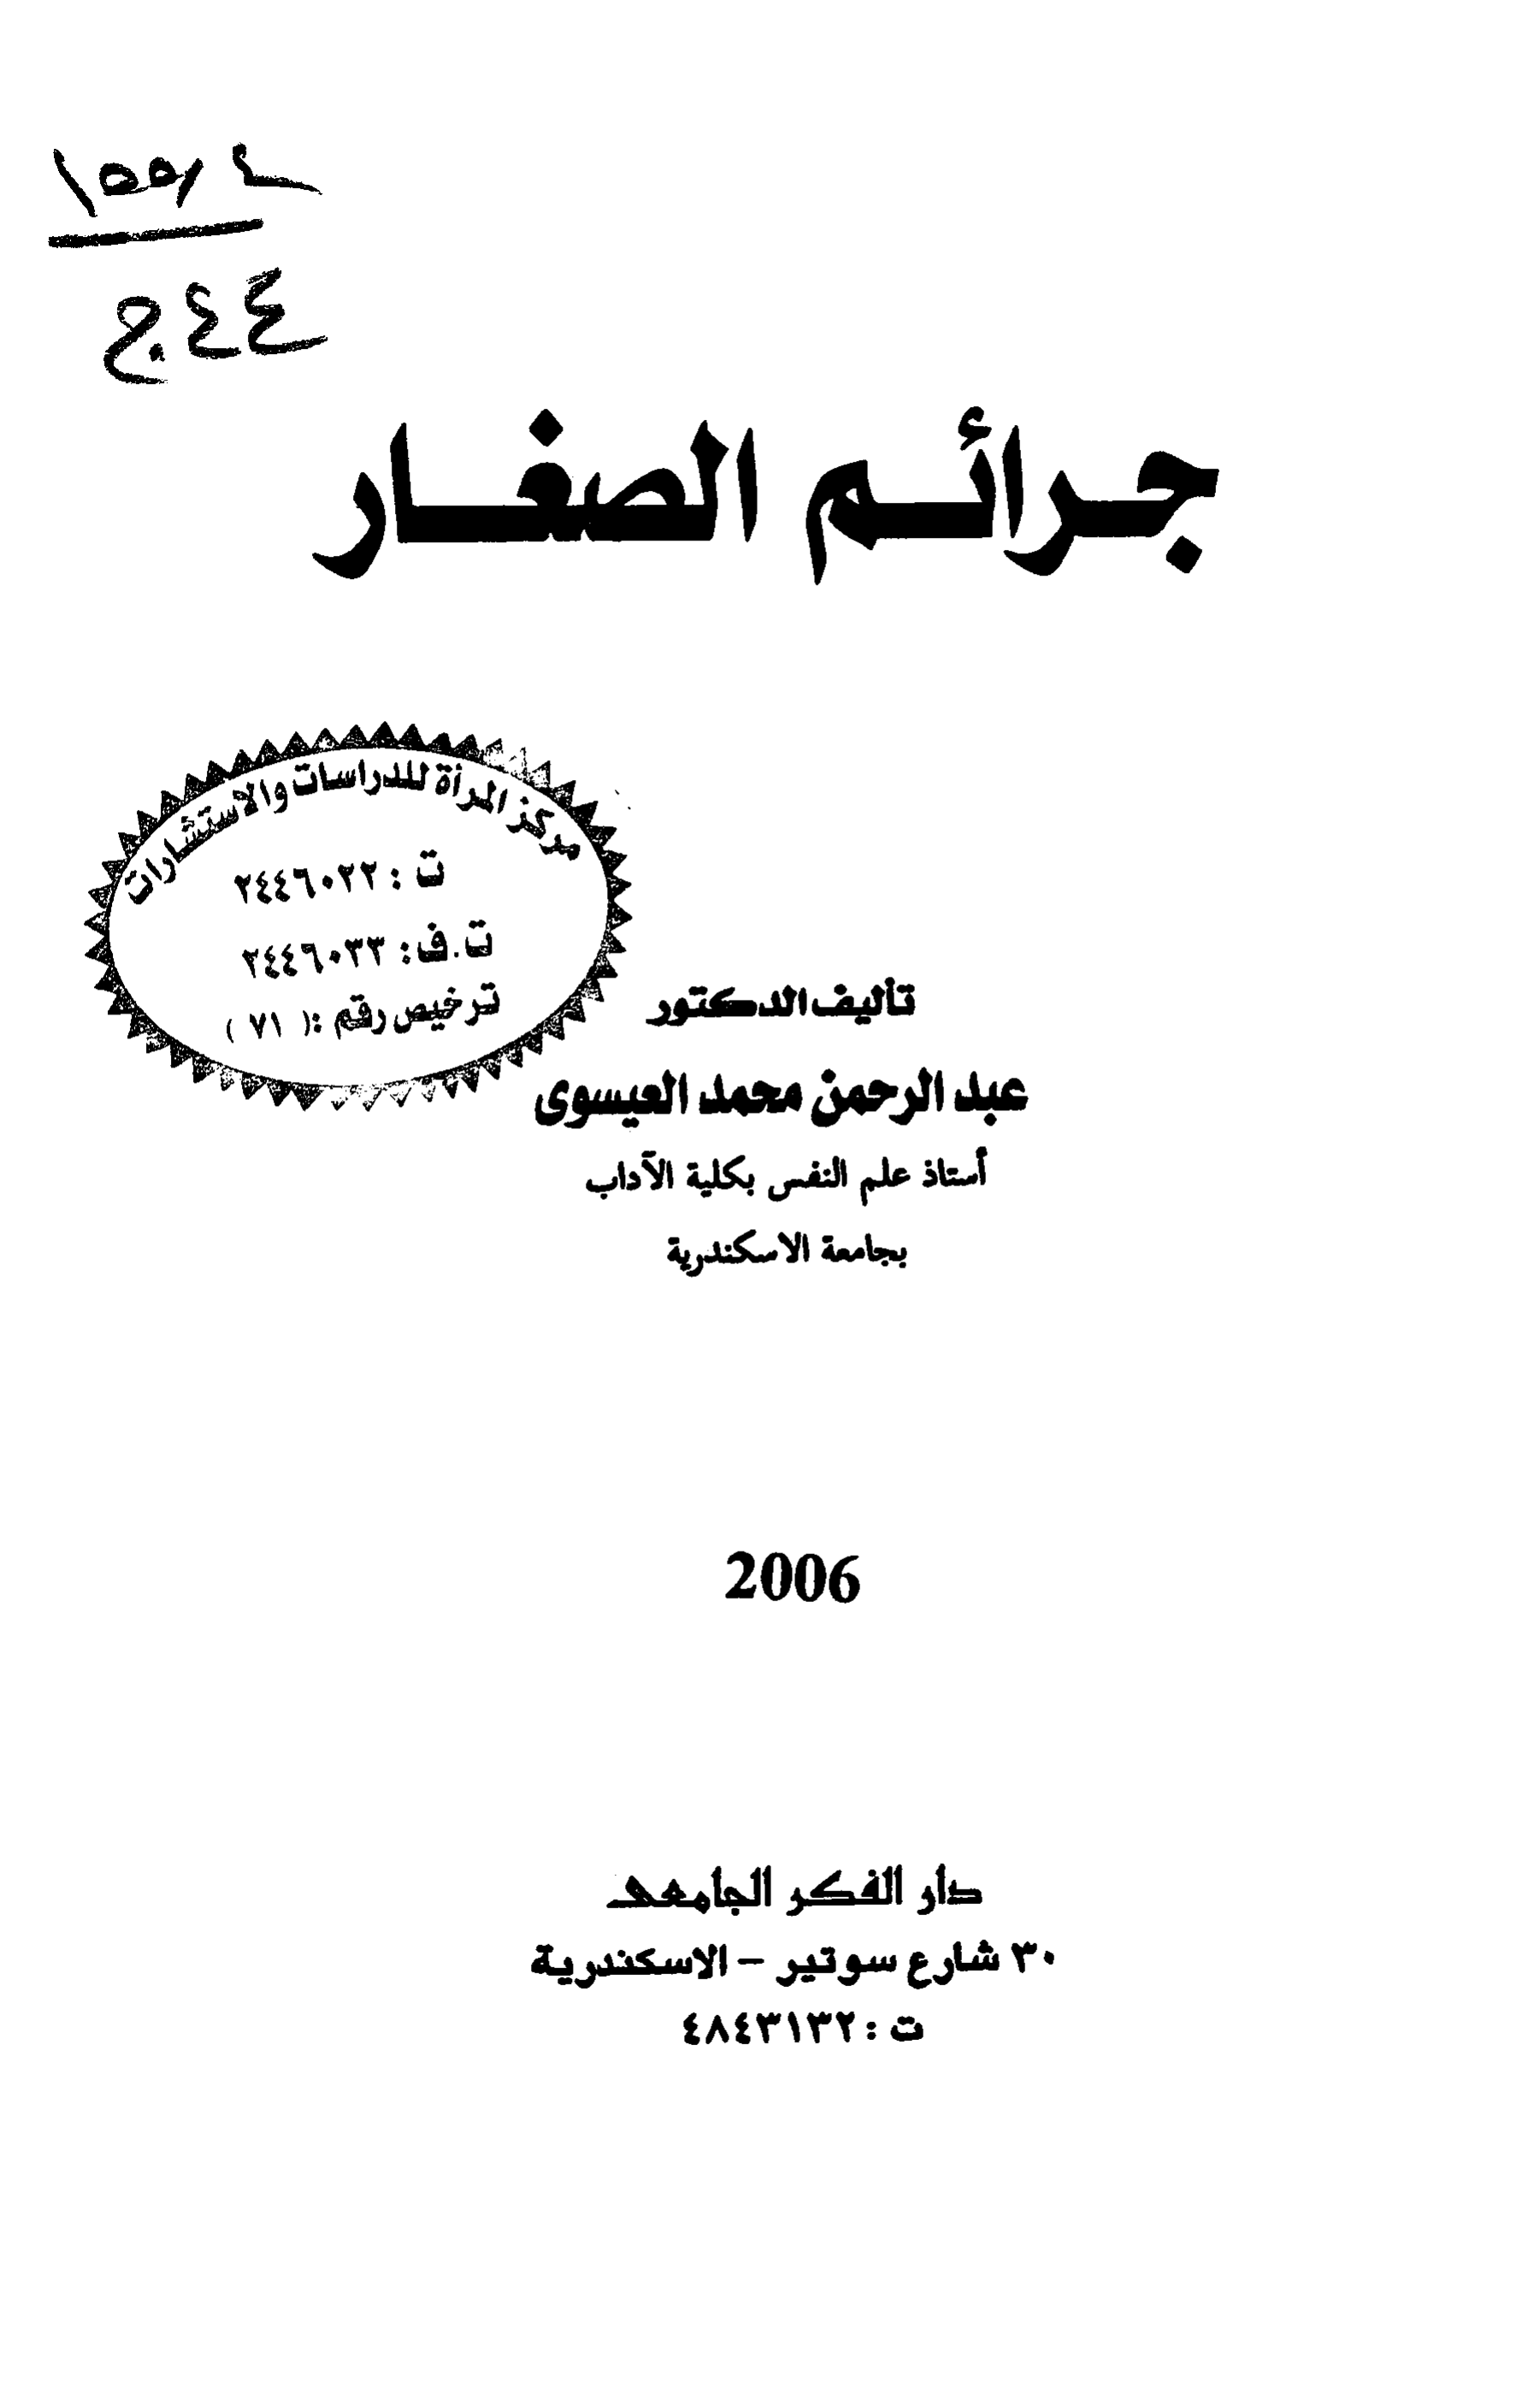 ج٤٤
جرائم الصغار
مركز المرأة للدراسات والاستشارات
ت : ٢٤٤٦٠٢٢
ت.ف: ٢٤٤٦٠٣٣
ترخيص رقم :( ٧١ )
تأليف الدكتور
عبد الرحمن محمد العيسوى
أستاذ علم النفس بكلية الآداب
بجامعة الاسكندرية
2006
دار الفكر الجامعى
٣٠ شارع سوتير - الاسكندرية
ت : ٤٨٤٣١٣٢